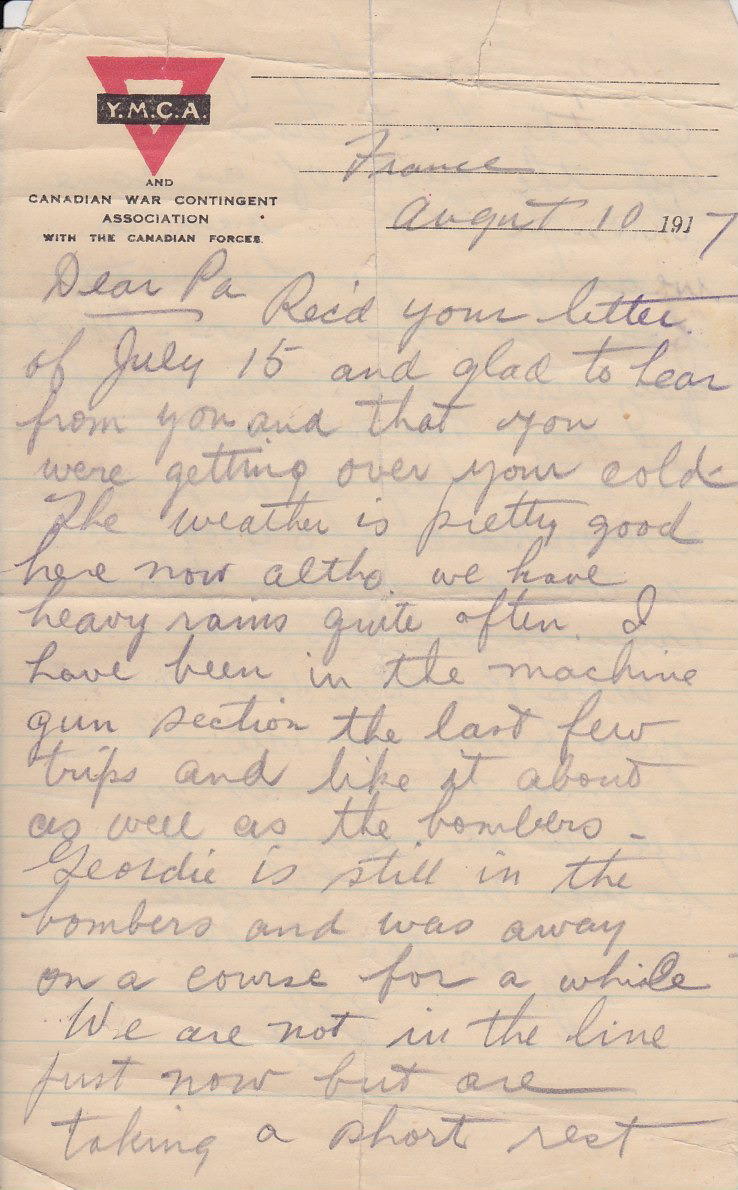 Y.M.C.A.
AND
CANADIAN WAR CONTINGENT
ASSOCIATION
WITH THE CANADIAN FORCES.
France
August 10 1917
Dear Pa Rec'd your letter
of July 15 and glad to hear
from you and that you
were getting over your cold
The weather is pretty good
here now altho we have
heavy rains quite often. I
have been in the machine
gun section the last few
trips and like it about
as well as the bombers -
Geordie is still in the
bombers and was away
on a course for a while
We are not in the line
just now but are
taking a short rest